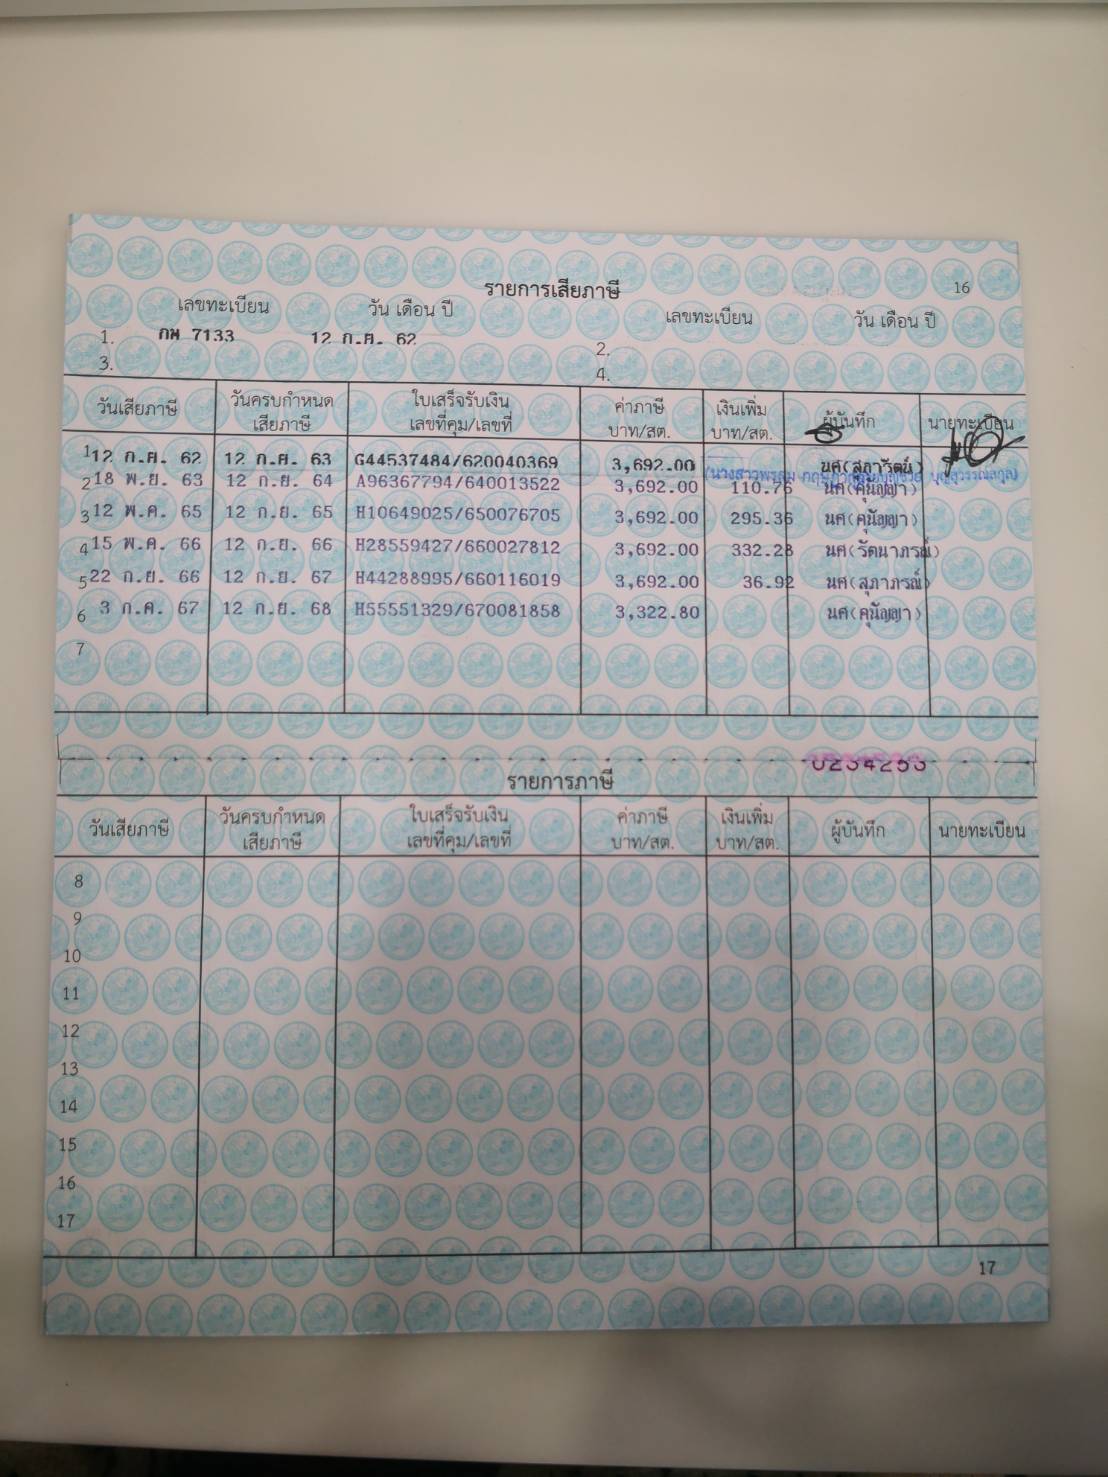 รายการเสียภาษี
16
เลขทะเบียน วัน เดือน ปี เลขทะเบียน วัน เดือน ปี
1. กน 7133 12 ก.ย. 62 2.
3. 4.
วันเสียภาษี วันครบกำหนด ใบเสร็จรับเงิน ค่าภาษี เงินเพิ่ม ผู้บันทึก นายทะเบียน
เสียภาษี เลขที่คุม/เลขที่ บาท/สต. บาท/สต.
1 12 ก.ย. 62 12 ก.ย. 63 G44537484/620040369 3,692.00 นศ(สุภารัตน์)
2 18 พ.ย. 63 12 ก.ย. 64 A96367794/640013522 3,692.00 110.76 นศ(คุนัญญา)
3 12 พ.ค. 65 12 ก.ย. 65 H10649025/650076705 3,692.00 295.36 นศ(คุนัญญา)
4 15 พ.ค. 66 12 ก.ย. 66 H28559427/660027812 3,692.00 332.28 นศ(รัตนาภรณ์)
5 22 ก.ย. 66 12 ก.ย. 67 H44288995/660116019 3,692.00 36.92 นศ(สุภาภรณ์)
6 3 ก.ค. 67 12 ก.ย. 68 H55551329/670081858 3,322.80 นศ(คุนัญญา)
7
0234253
รายการภาษี
วันเสียภาษี วันครบกำหนด ใบเสร็จรับเงิน ค่าภาษี เงินเพิ่ม ผู้บันทึก นายทะเบียน
เสียภาษี เลขที่คุม/เลขที่ บาท/สต. บาท/สต.
8
9
10
11
12
13
14
15
16
17
17